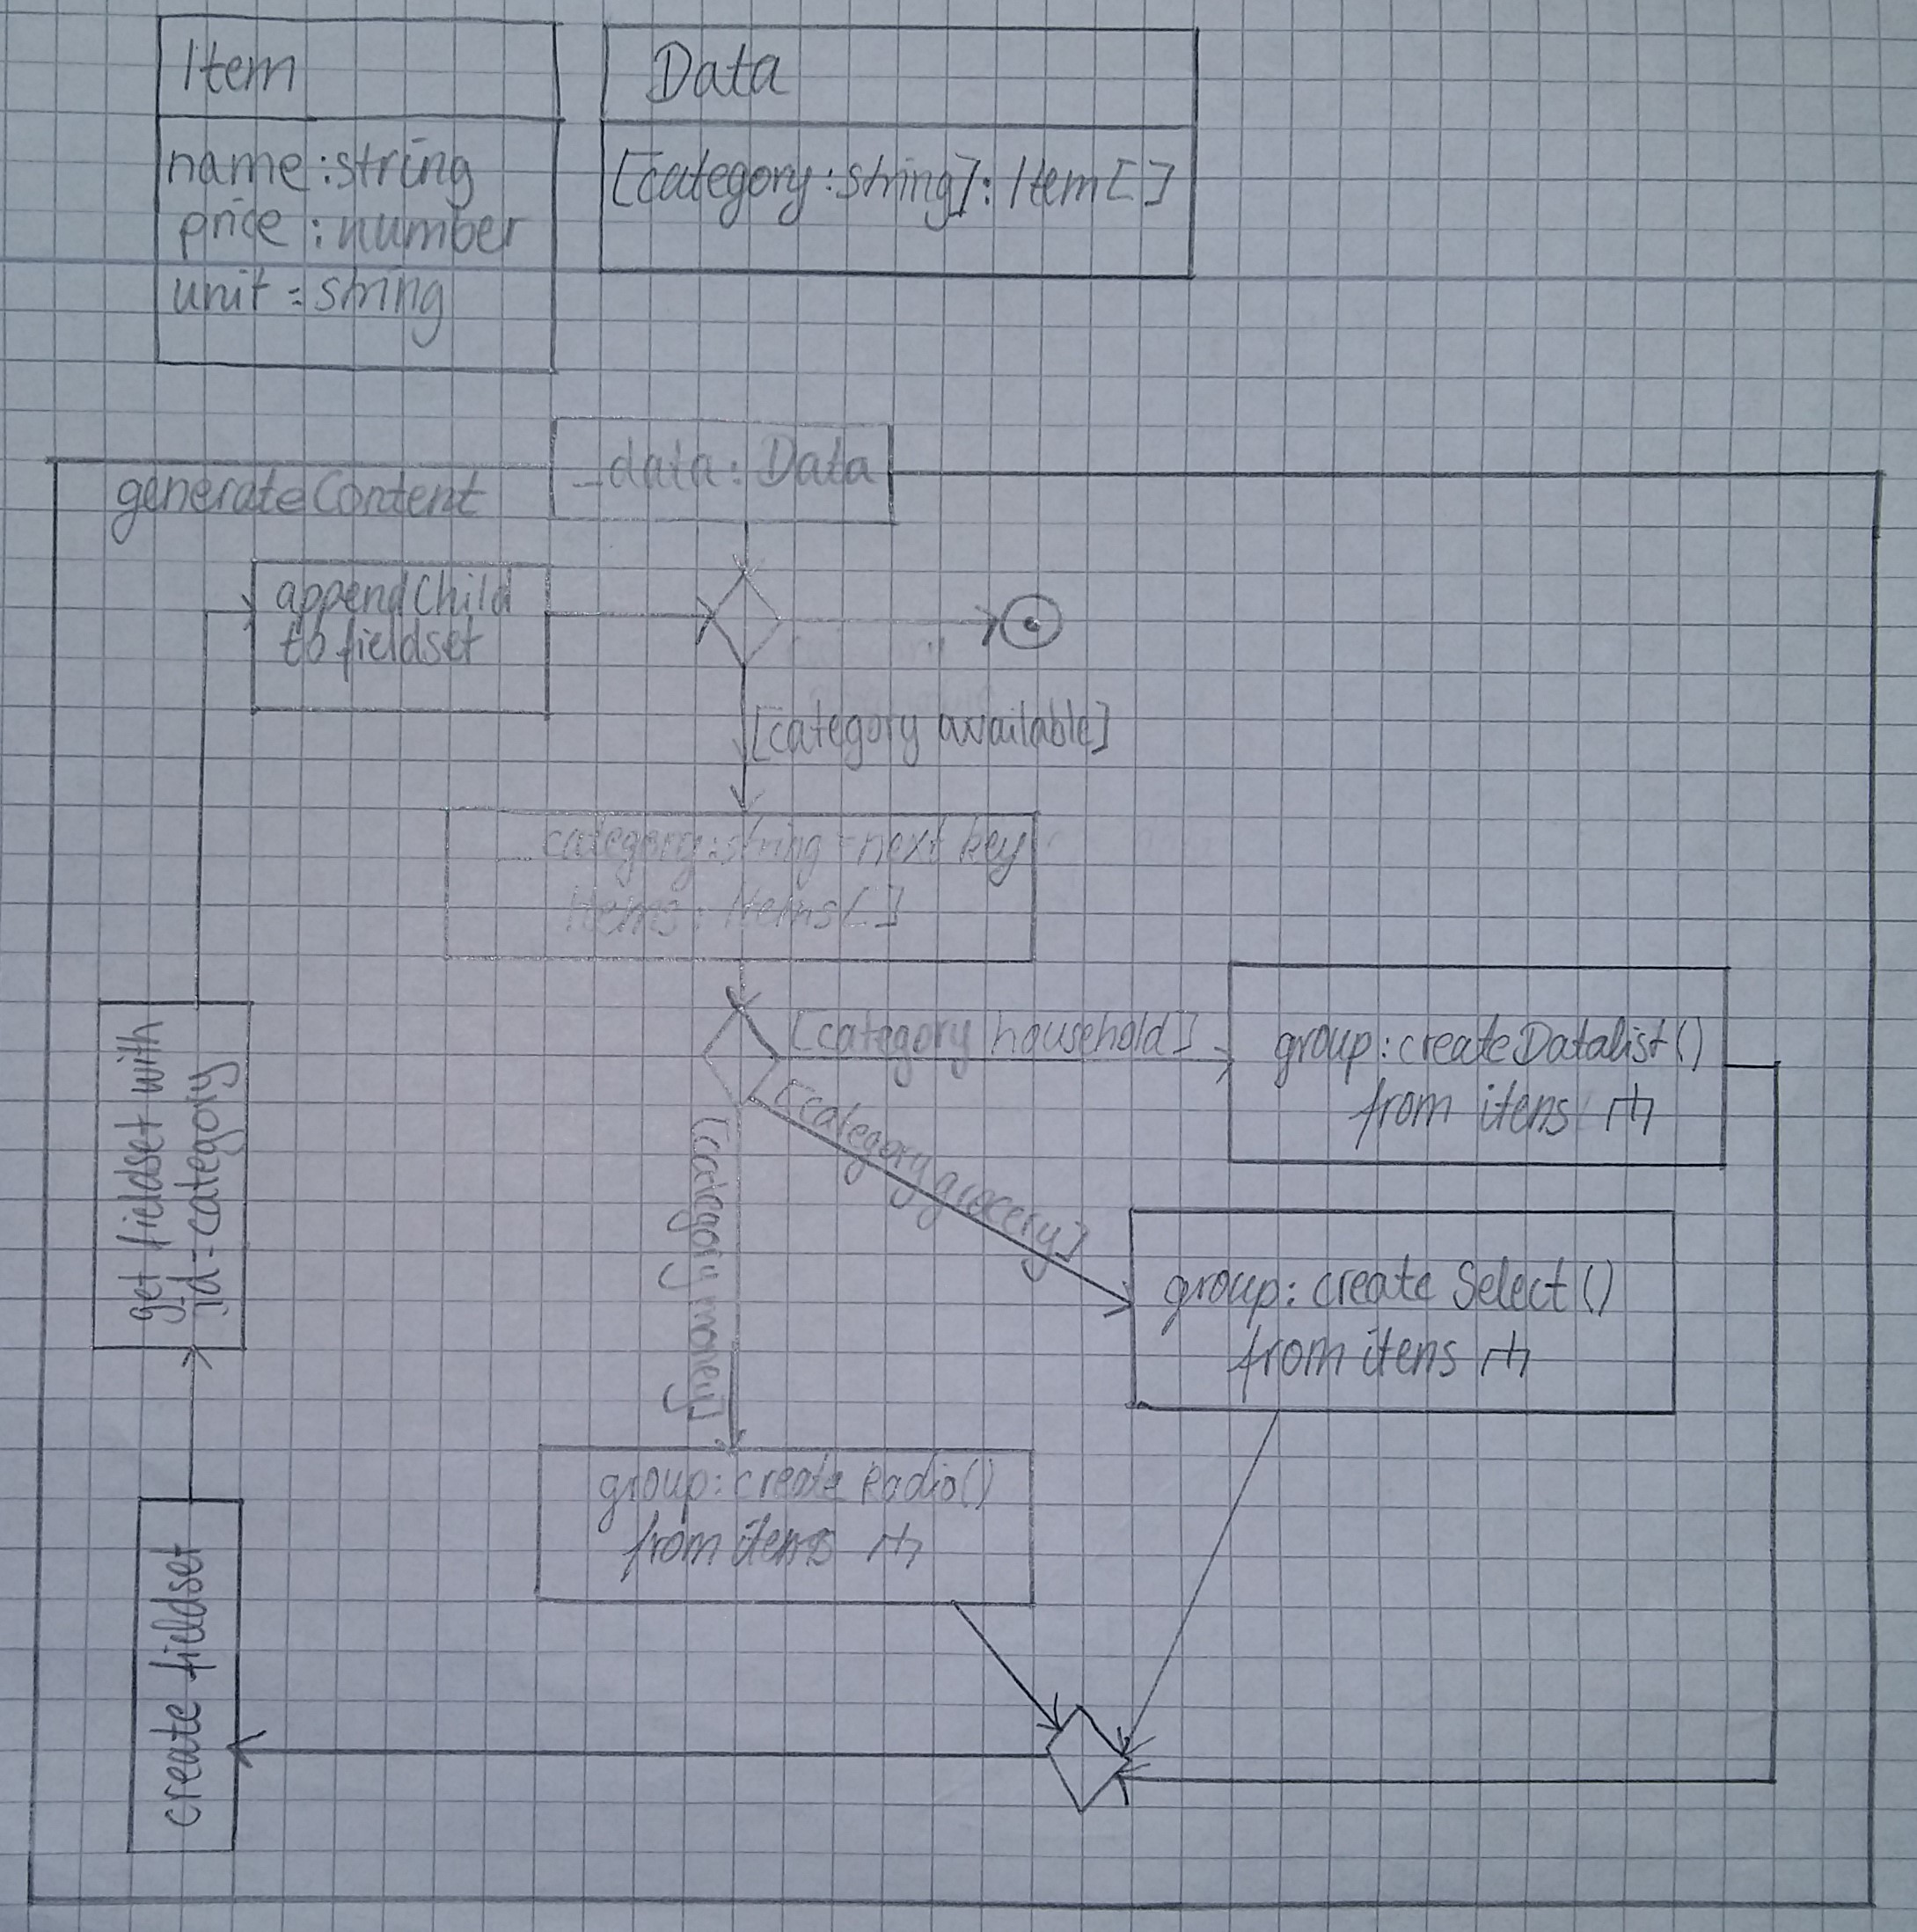 Item
name:string
price:number
unit=string
Data
[category:string]:Item[]
generateContent
_data:Data
appendChild
to fieldset
[category available]
_category:string=next key
Items:Items[]
[category household]
group:createDatalist()
from itens
[category grocery]
group:create Select()
from itens
[category money]
group:create Radio()
from itens
get fieldset with
id=category
create fieldset